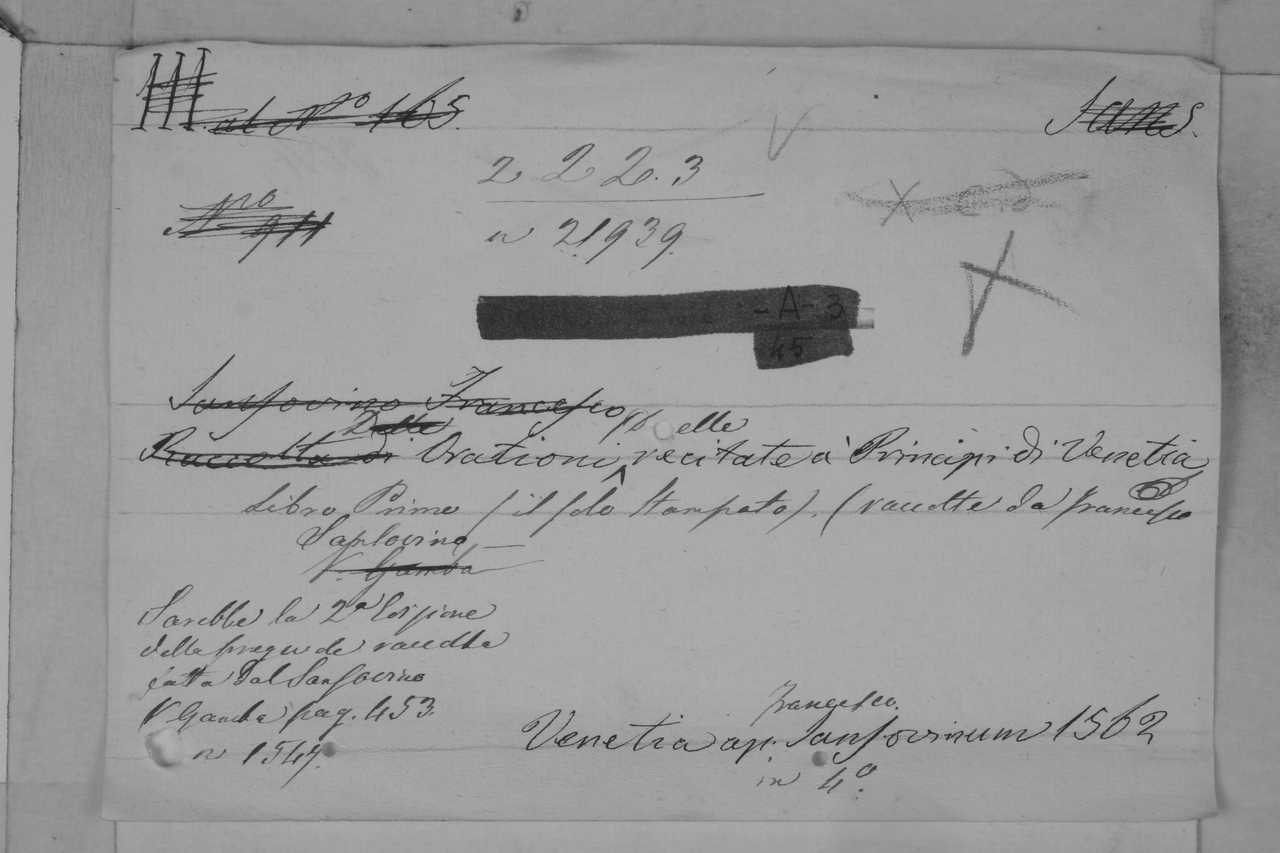 III. al Nº 165. Sans.
2 2 2. 3
Nº 911
n 21939.
- A - 3
45
Sansovino Francesco
Delle Delle
Raccolta di Orationi recitate a' Principi di Venetia
Libro Primo (il solo stampato). (raccolte da Francesco
Sansovino
V. Gamba
Sarebbe la 2ª Edizione
della raccolta
fatta dal Sansovino
V Gamba pag. 453.
n 1549.
Francesco.
Venetia ap. Sansovinum 1562
in 4º.